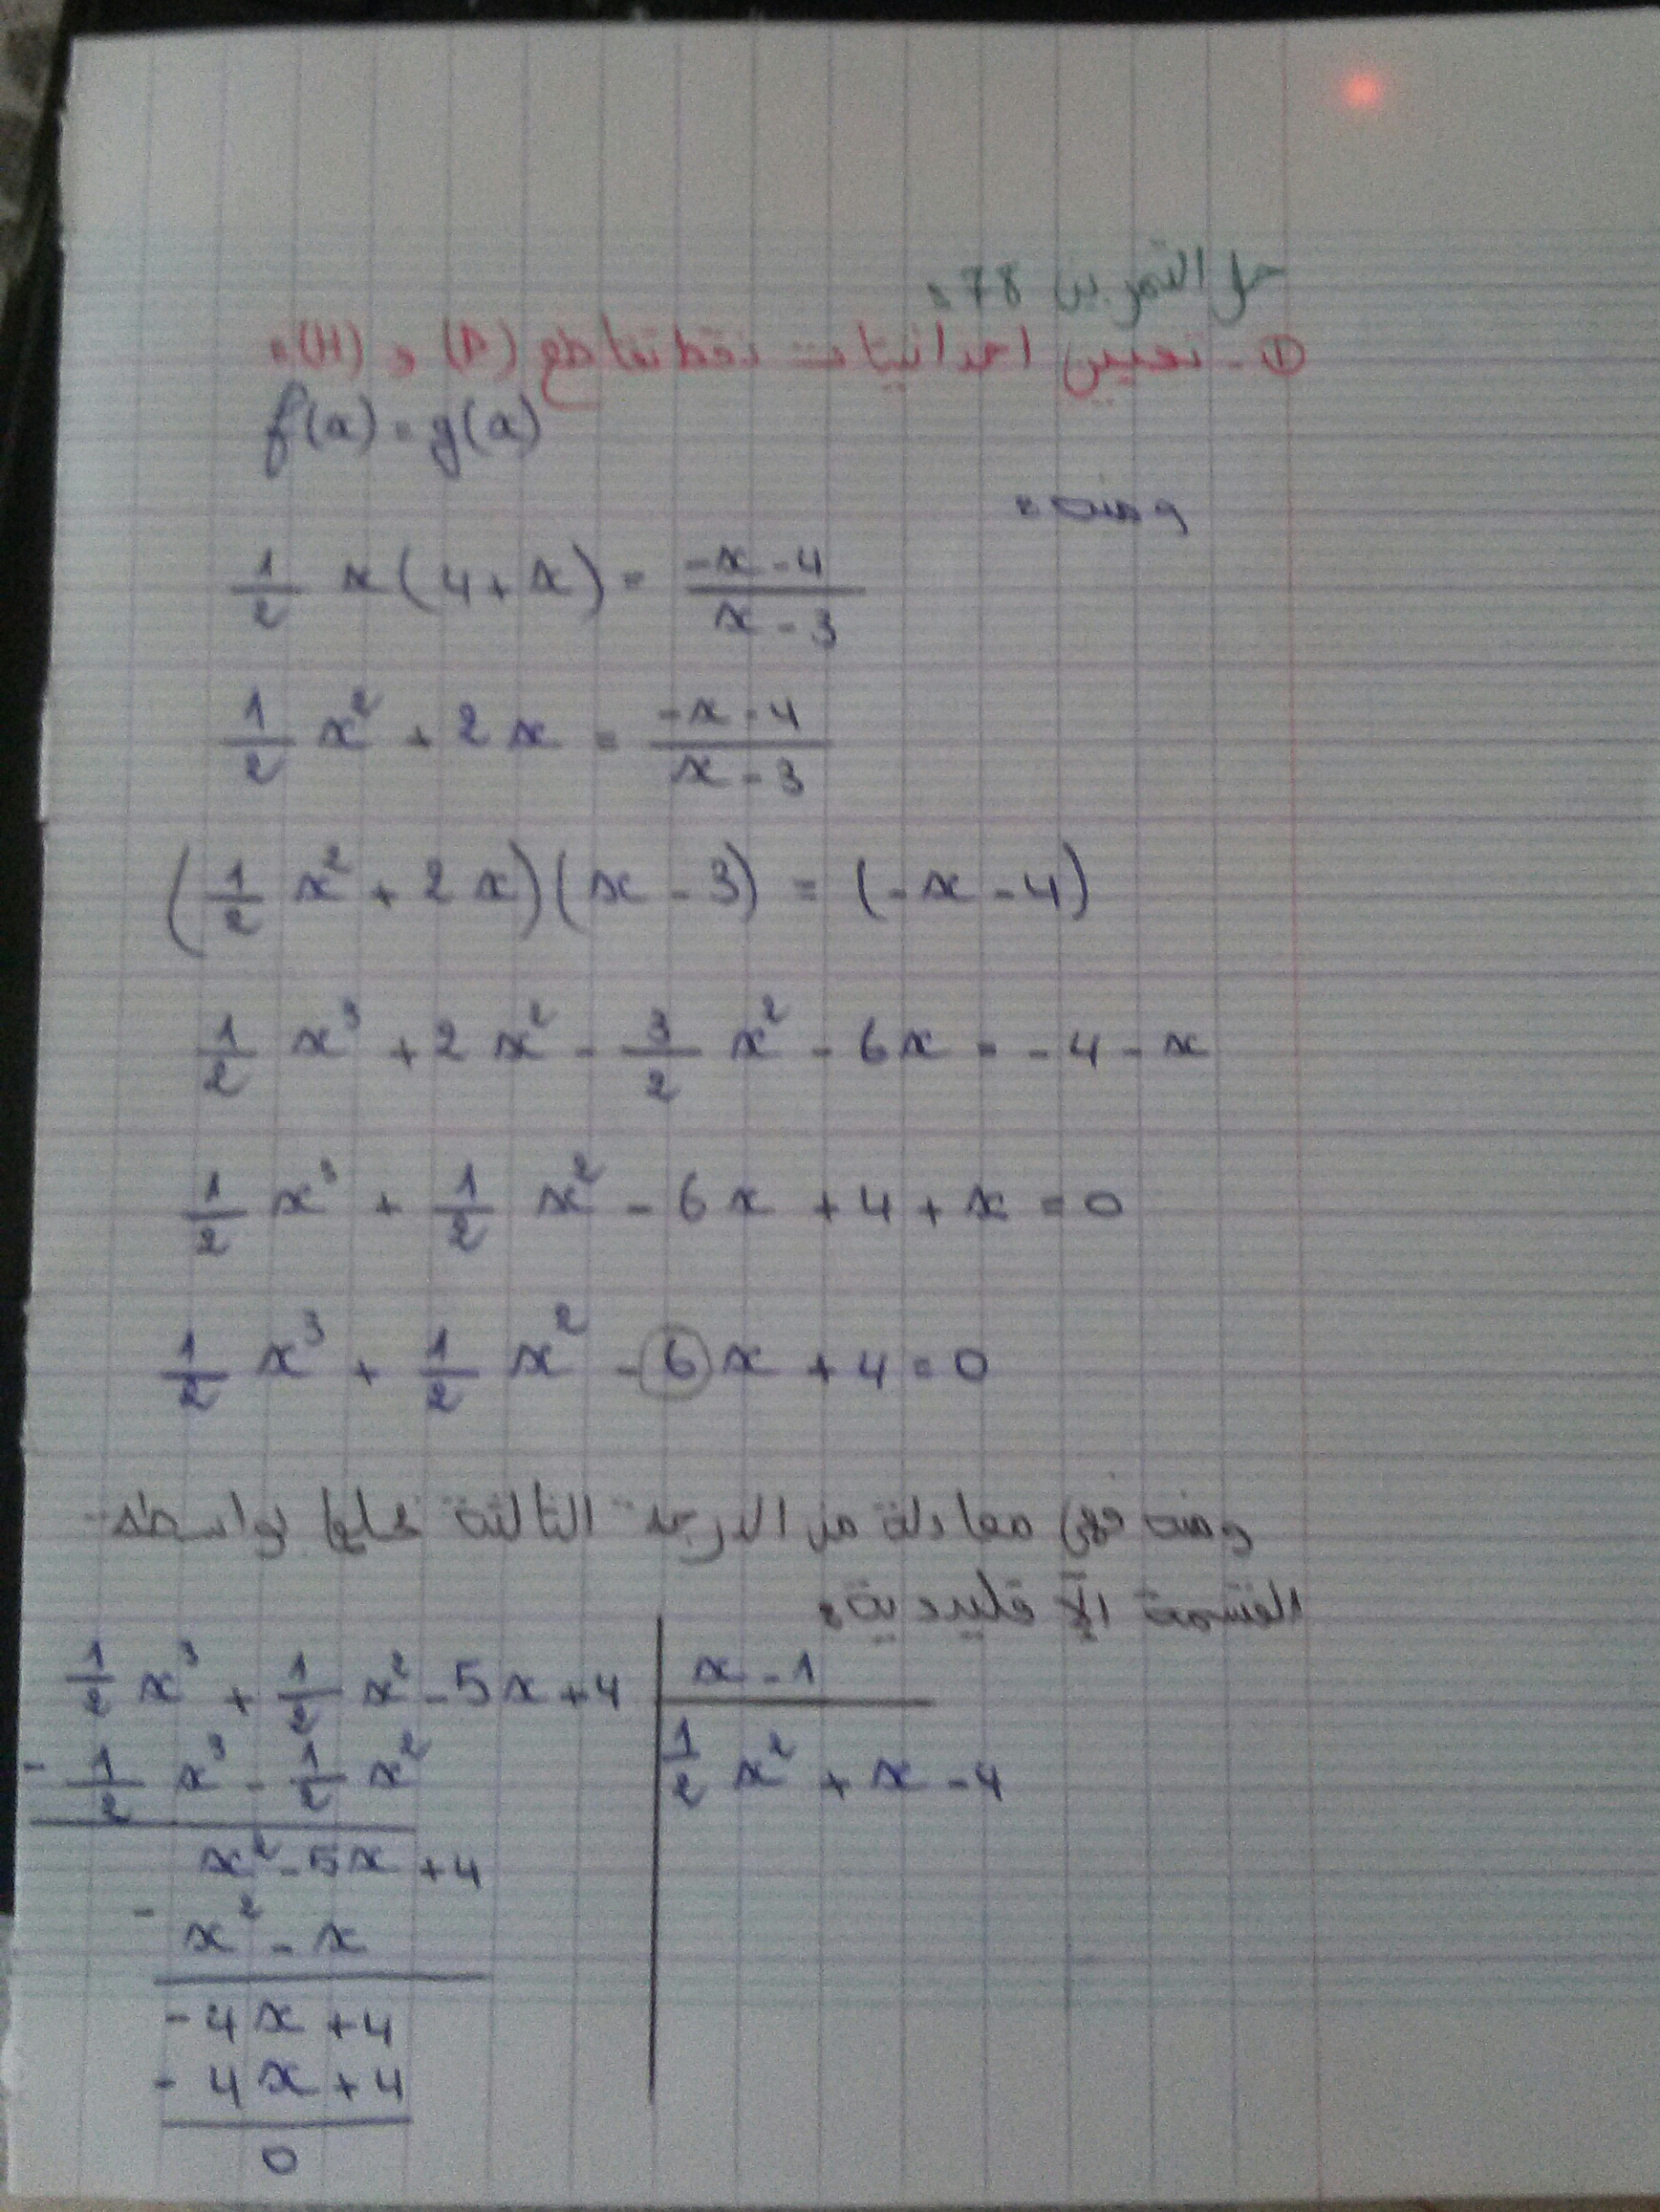 حل التمرين 78:
① - تعيين احداثيات نقط تقاطع (P) و (H):
f(a) = g(a)
ومنه:
1/2 x(4+x) = (-x-4)/(x-3)
1/2 x² + 2x = (-x-4)/(x-3)
(1/2 x² + 2x)(x-3) = (-x-4)
1/2 x³ + 2x² - 3/2 x² - 6x = -4-x
1/2 x³ + 1/2 x² - 6x + 4 + x = 0
1/2 x³ + 1/2 x² - 6x + 4 = 0
ومنه فهي معادلة من الدرجة الثالثة نحلها بواسطة
القسمة الإقليدية:
1/2 x³ + 1/2 x² - 5x + 4 | x - 1
- 1/2 x³ - 1/2 x² | 1/2 x² + x - 4
x² - 5x + 4
- x² - x
-4x + 4
- 4x + 4
0